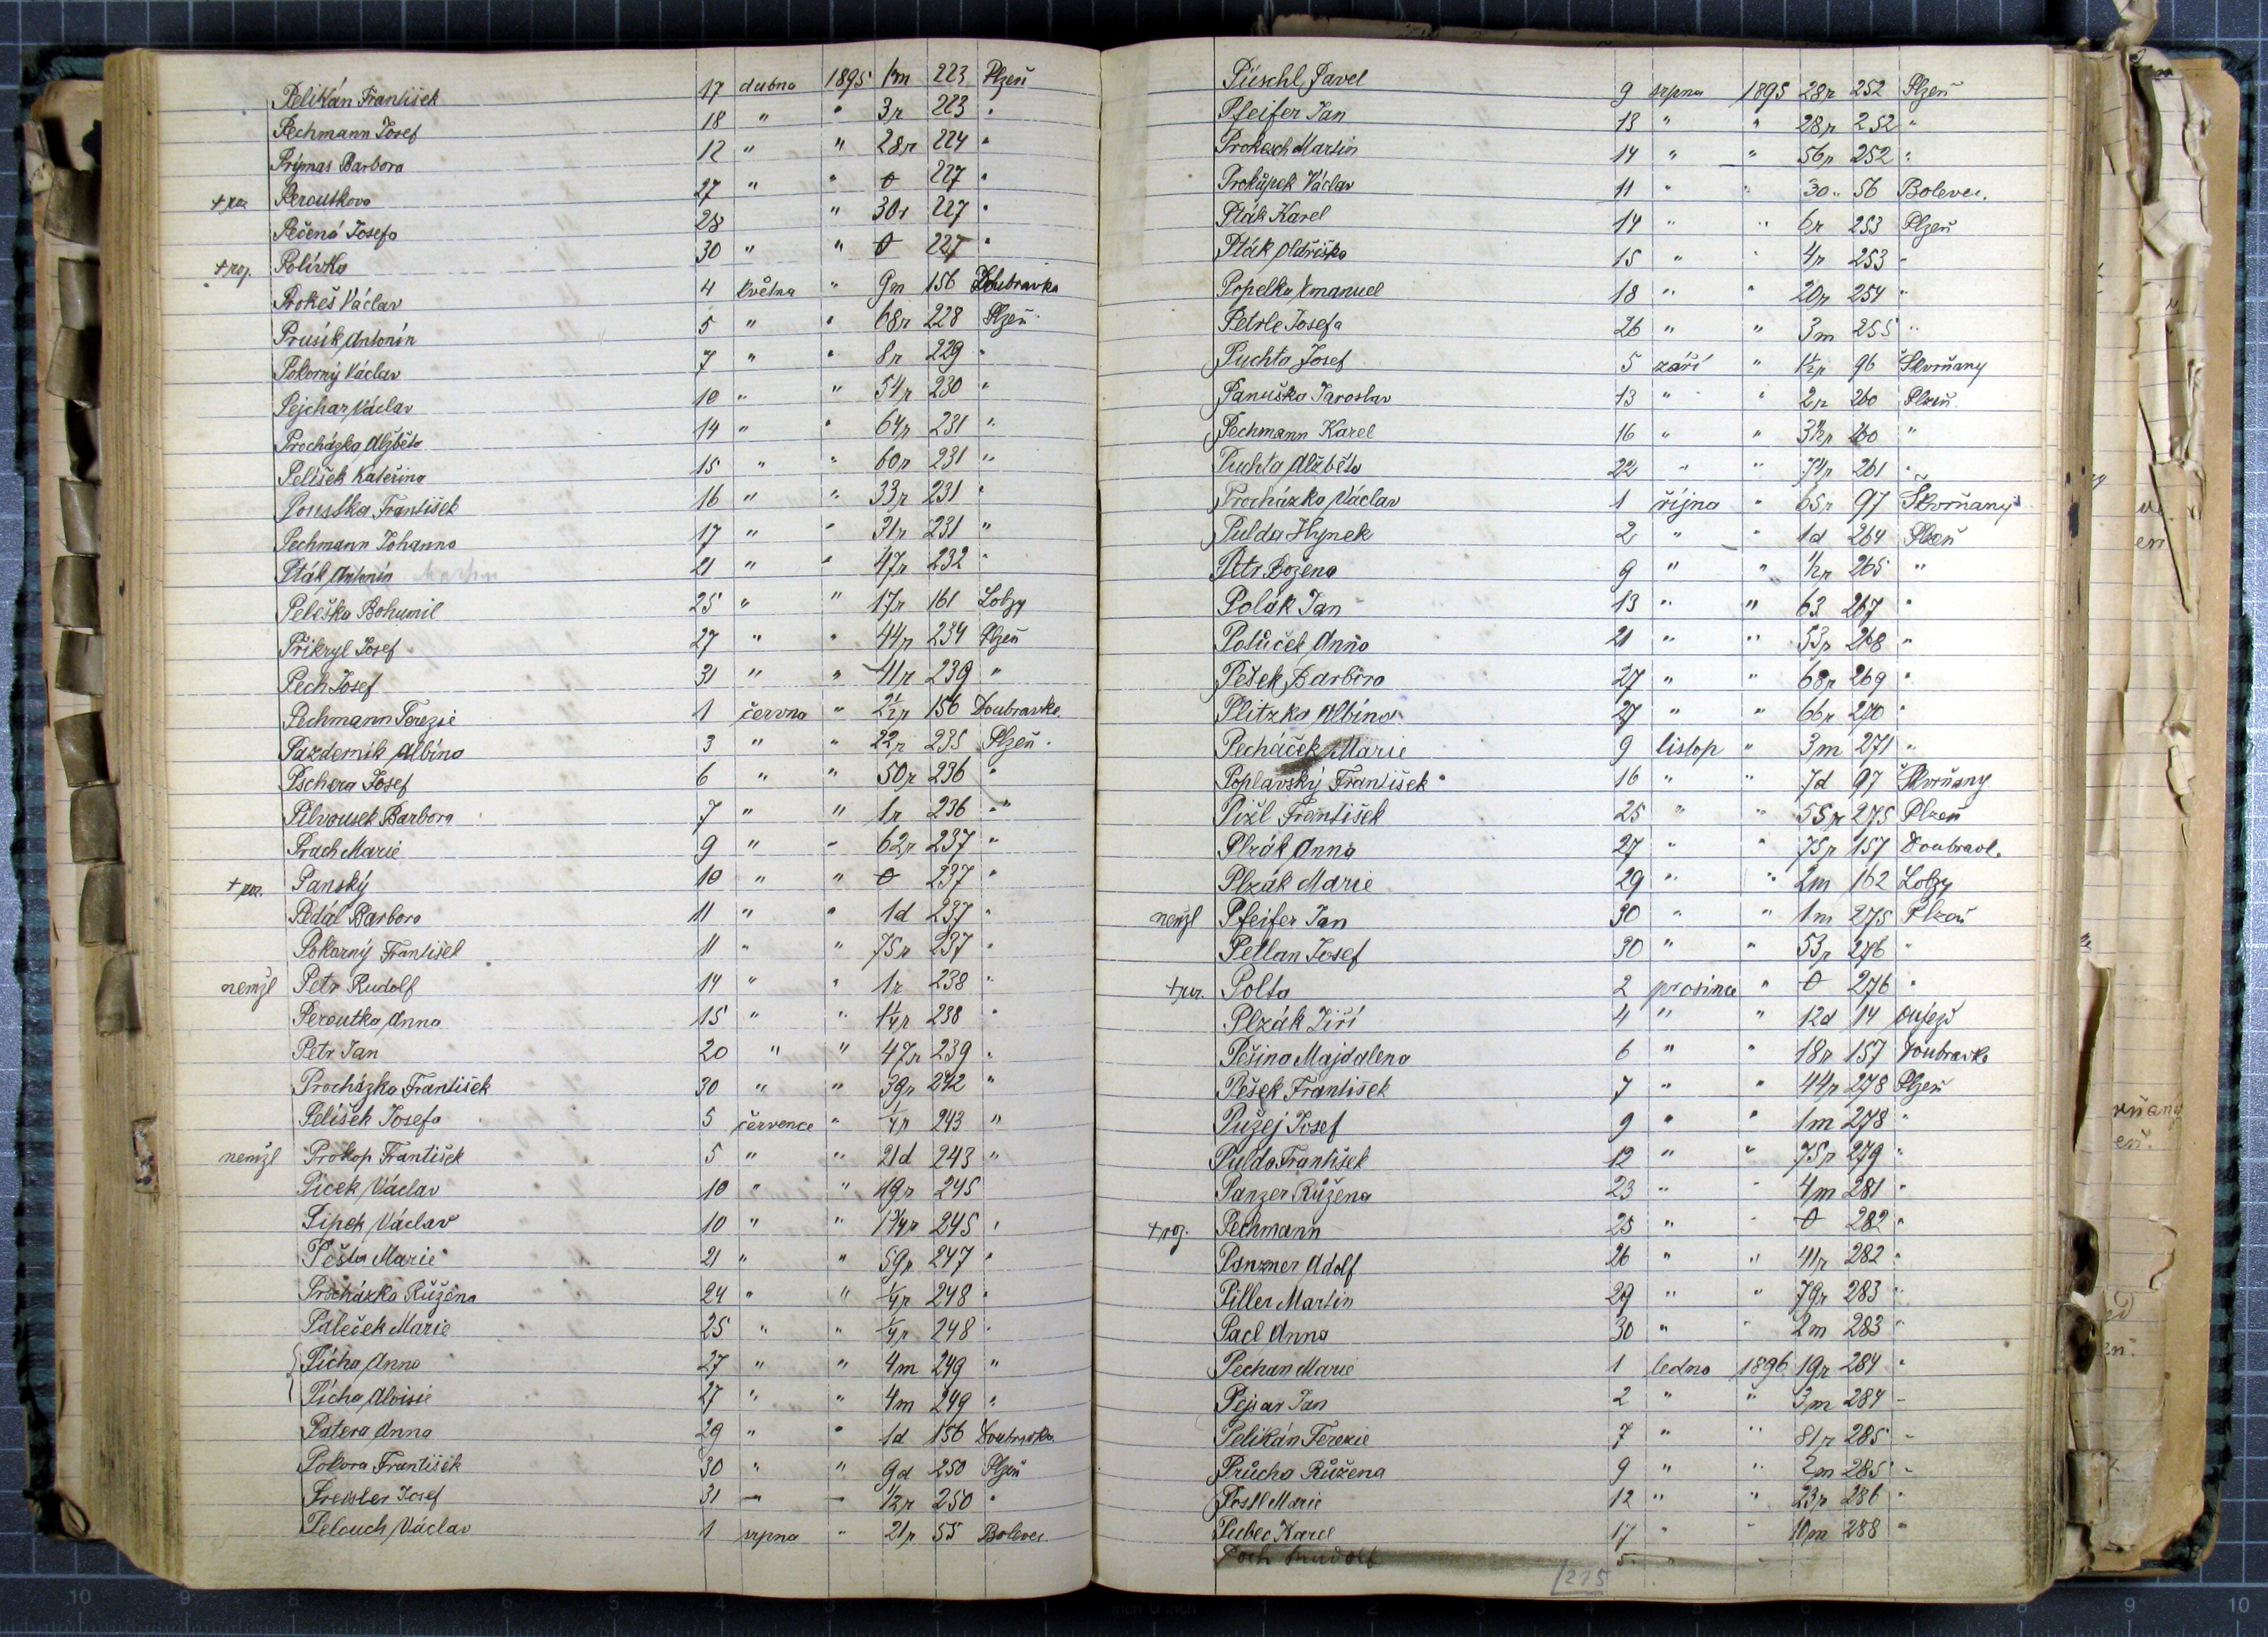 Pelikán František 17 dubna 1895 1m 223 Plzeň
Pechmann Josef 18 " " 3r 223 "
Prýmas Barbora 12 " " 28r 224 "
Peroutkova 27 " " 0 227 "
Pečená Josefa 28 " 30r 227 "
Polívka 30 " " 0 227 "
Prokeš Václav 4 května " 9m 156 Doubravka
Prusík Antonín 5 " " 68r 228 Plzeň
Pokorný Václav 7 " " 8r 229 "
Pejchar Václav 10 " " 54r 230 "
Procházka Alžběta 14 " " 64r 231 "
Pelíšek Kateřina 15 " " 60r 231 "
Poustka František 16 " " 33r 231 "
Pechmann Johanna 17 " " 31r 231 "
Pták Antonín Martin 21 " " 47r 232 "
Peleška Bohumil 25 " " 17r 161 Lobzy
Přikryl Josef 27 " " 44r 234 Plzeň
Pech Josef 31 " " 41r 239 "
Pechmann Terezie 1 června " 2½r 156 Doubravka
Pazderník Albína 3 " " 22r 235 Plzeň
Pschera Josef 6 " " 50r 236 "
Pilvousek Barbora 7 " " 1r 236 "
Prach Marie 9 " " 62r 237 "
Panský 10 " " 0 237 "
Pedál Barbora 11 " " 1d 237 "
Pokorný František 11 " " 75r 237 "
nemzl Petr Rudolf 14 " " 1r 238 "
Peroutka Anna 15 " " 1¼r 238 "
Petr Jan 20 " " 47r 239 "
Procházka František 30 " " 39r 242 "
Pelíšek Josefa 5 července " ¼r 243 "
nemzl Prokop František 5 " " 21d 243 "
Picek Václav 10 " " 49r 245
Pipek Václav 10 " " 1¾r 245 "
Pešta Marie 21 " " 59r 247 "
Procházka Růžena 24 " " ¼r 248 "
Paleček Marie 25 " " ¼r 248 "
Pícha Anna 27 " " 4m 249 "
Pícha Aloisie 27 " " 4m 249 "
Patera Anna 29 " " 1d 156 Doubravka
Pokora František 30 " " 9d 250 Plzeň
Preisler Josef 31 - - ½r 250 "
Pelouch Václav 1 srpna " 21r 55 Bolevec
Püschl Pavel 9 srpna 1895 28r 252 Plzeň
Pfeifer Jan 13 " " 28r 252 "
Prokesch Martin 14 " " 56r 252 "
Prokůpek Václav 11 " " 30 " 56 Bolevec.
Pták Karel 14 " " 6r 253 Plzeň
Pták Oldřiška 15 " " 4r 253 "
Popelka Emanuel 18 " " 20r 254 "
Petrle Josefa 26 " " 3m 255 "
Puchta Josef 5 září " 1½r 96 Skvrňany
Panuška Jaroslav 13 " " 2r 260 Plzeň
Pechmann Karel 16 " " 3½r 260 "
Puchta Alžběta 22 " " 74r 261 "
Procházka Václav 1 října " 65r 97 Skvrňany
Pulda Hynek 2 " " 1d 264 Plzeň
Petr Božena 9 " " ½r 265 "
Polák Jan 13 " " 63 267 "
Polůček Anna 21 " " 53r 268 "
Pešek Barbora 27 " " 68r 269 "
Plitzka Albína 27 " " 66r 270 "
Pecháček Marie 9 listop " 3m 271 "
Poplavský František 16 " " 7d 97 Skvrňany
Pižl František 25 " " 55r 275 Plzeň
Plzák Anna 27 " " 75r 157 Doubravk.
Plzák Marie 29 " " 2m 162 Lobzy
nemzl Pfeifer Jan 30 " " 1m 275 Plzeň
Pellan Josef 30 " " 53r 276 "
Polta 2 prosince " 0 276 "
Plzák Jiří 4 " " 12d 14 Oujezd
Pešina Majdalena 6 " " 18r 157 Doubravka
Pešek František 7 " " 44r 278 Plzeň
Pužej Josef 9 " " 1m 278 "
Pulda František 12 " " 75r 279 "
Panzer Růžena 23 " " 4m 281 "
Pechmann 25 " " 0 282 "
Panzner Adolf 26 " " 41r 282 "
Piller Martin 29 " " 79r 283 "
Pacl Anna 30 " " 2m 283 "
Pechan Marie 1 ledna 1896 19r 284 "
Pejsar Jan 2 " " 3m 284 -
Pelikán Terezie 7 " " 81r 285 -
Průcha Růžena 9 " " 2m 285 -
Postl Marie 12 " " 23r 286 "
Pubec Karel 17 " " 10m 288 "
Poch Rudolf 5
225